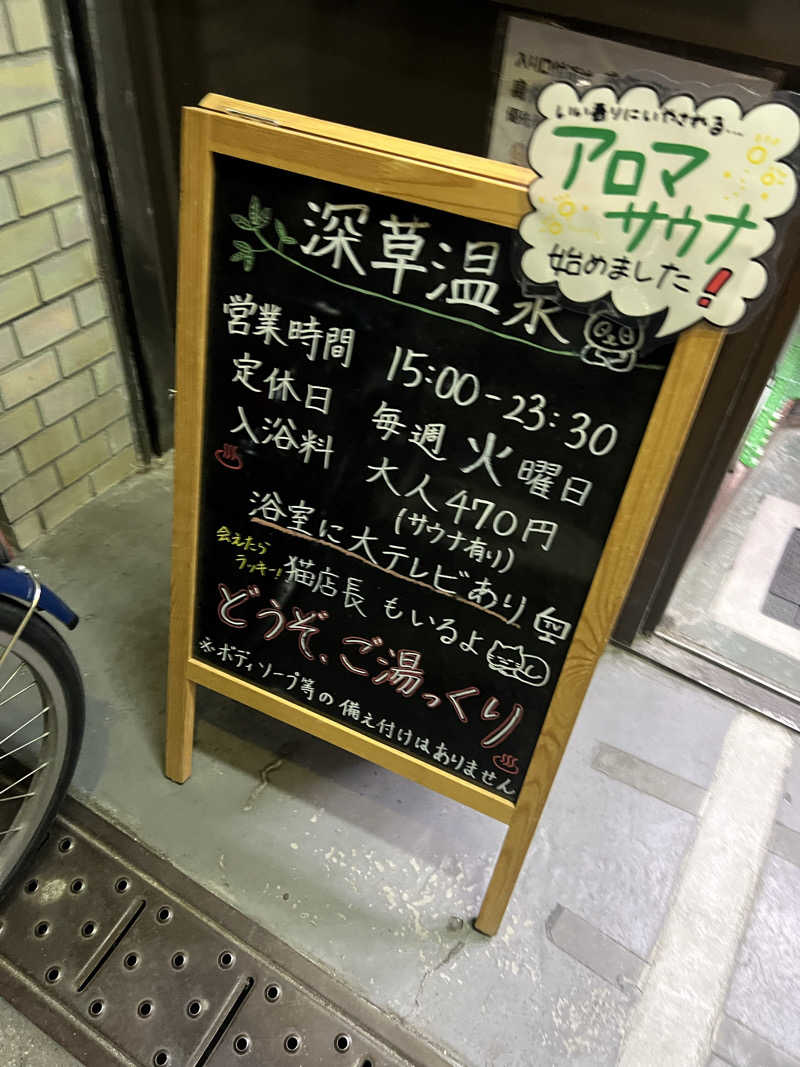 いい香りにいやされる...
アロマ
サウナ
始めました!
深草温泉
営業時間 15:00-23:30
定休日 毎週火曜日
入浴料 大人470円
(サウナ有り)
浴室に大テレビあり TV
会えたら
ラッキー!
猫店長もいるよ
どうぞ、ご湯っくり
※ボディソープ等の備え付けはありません